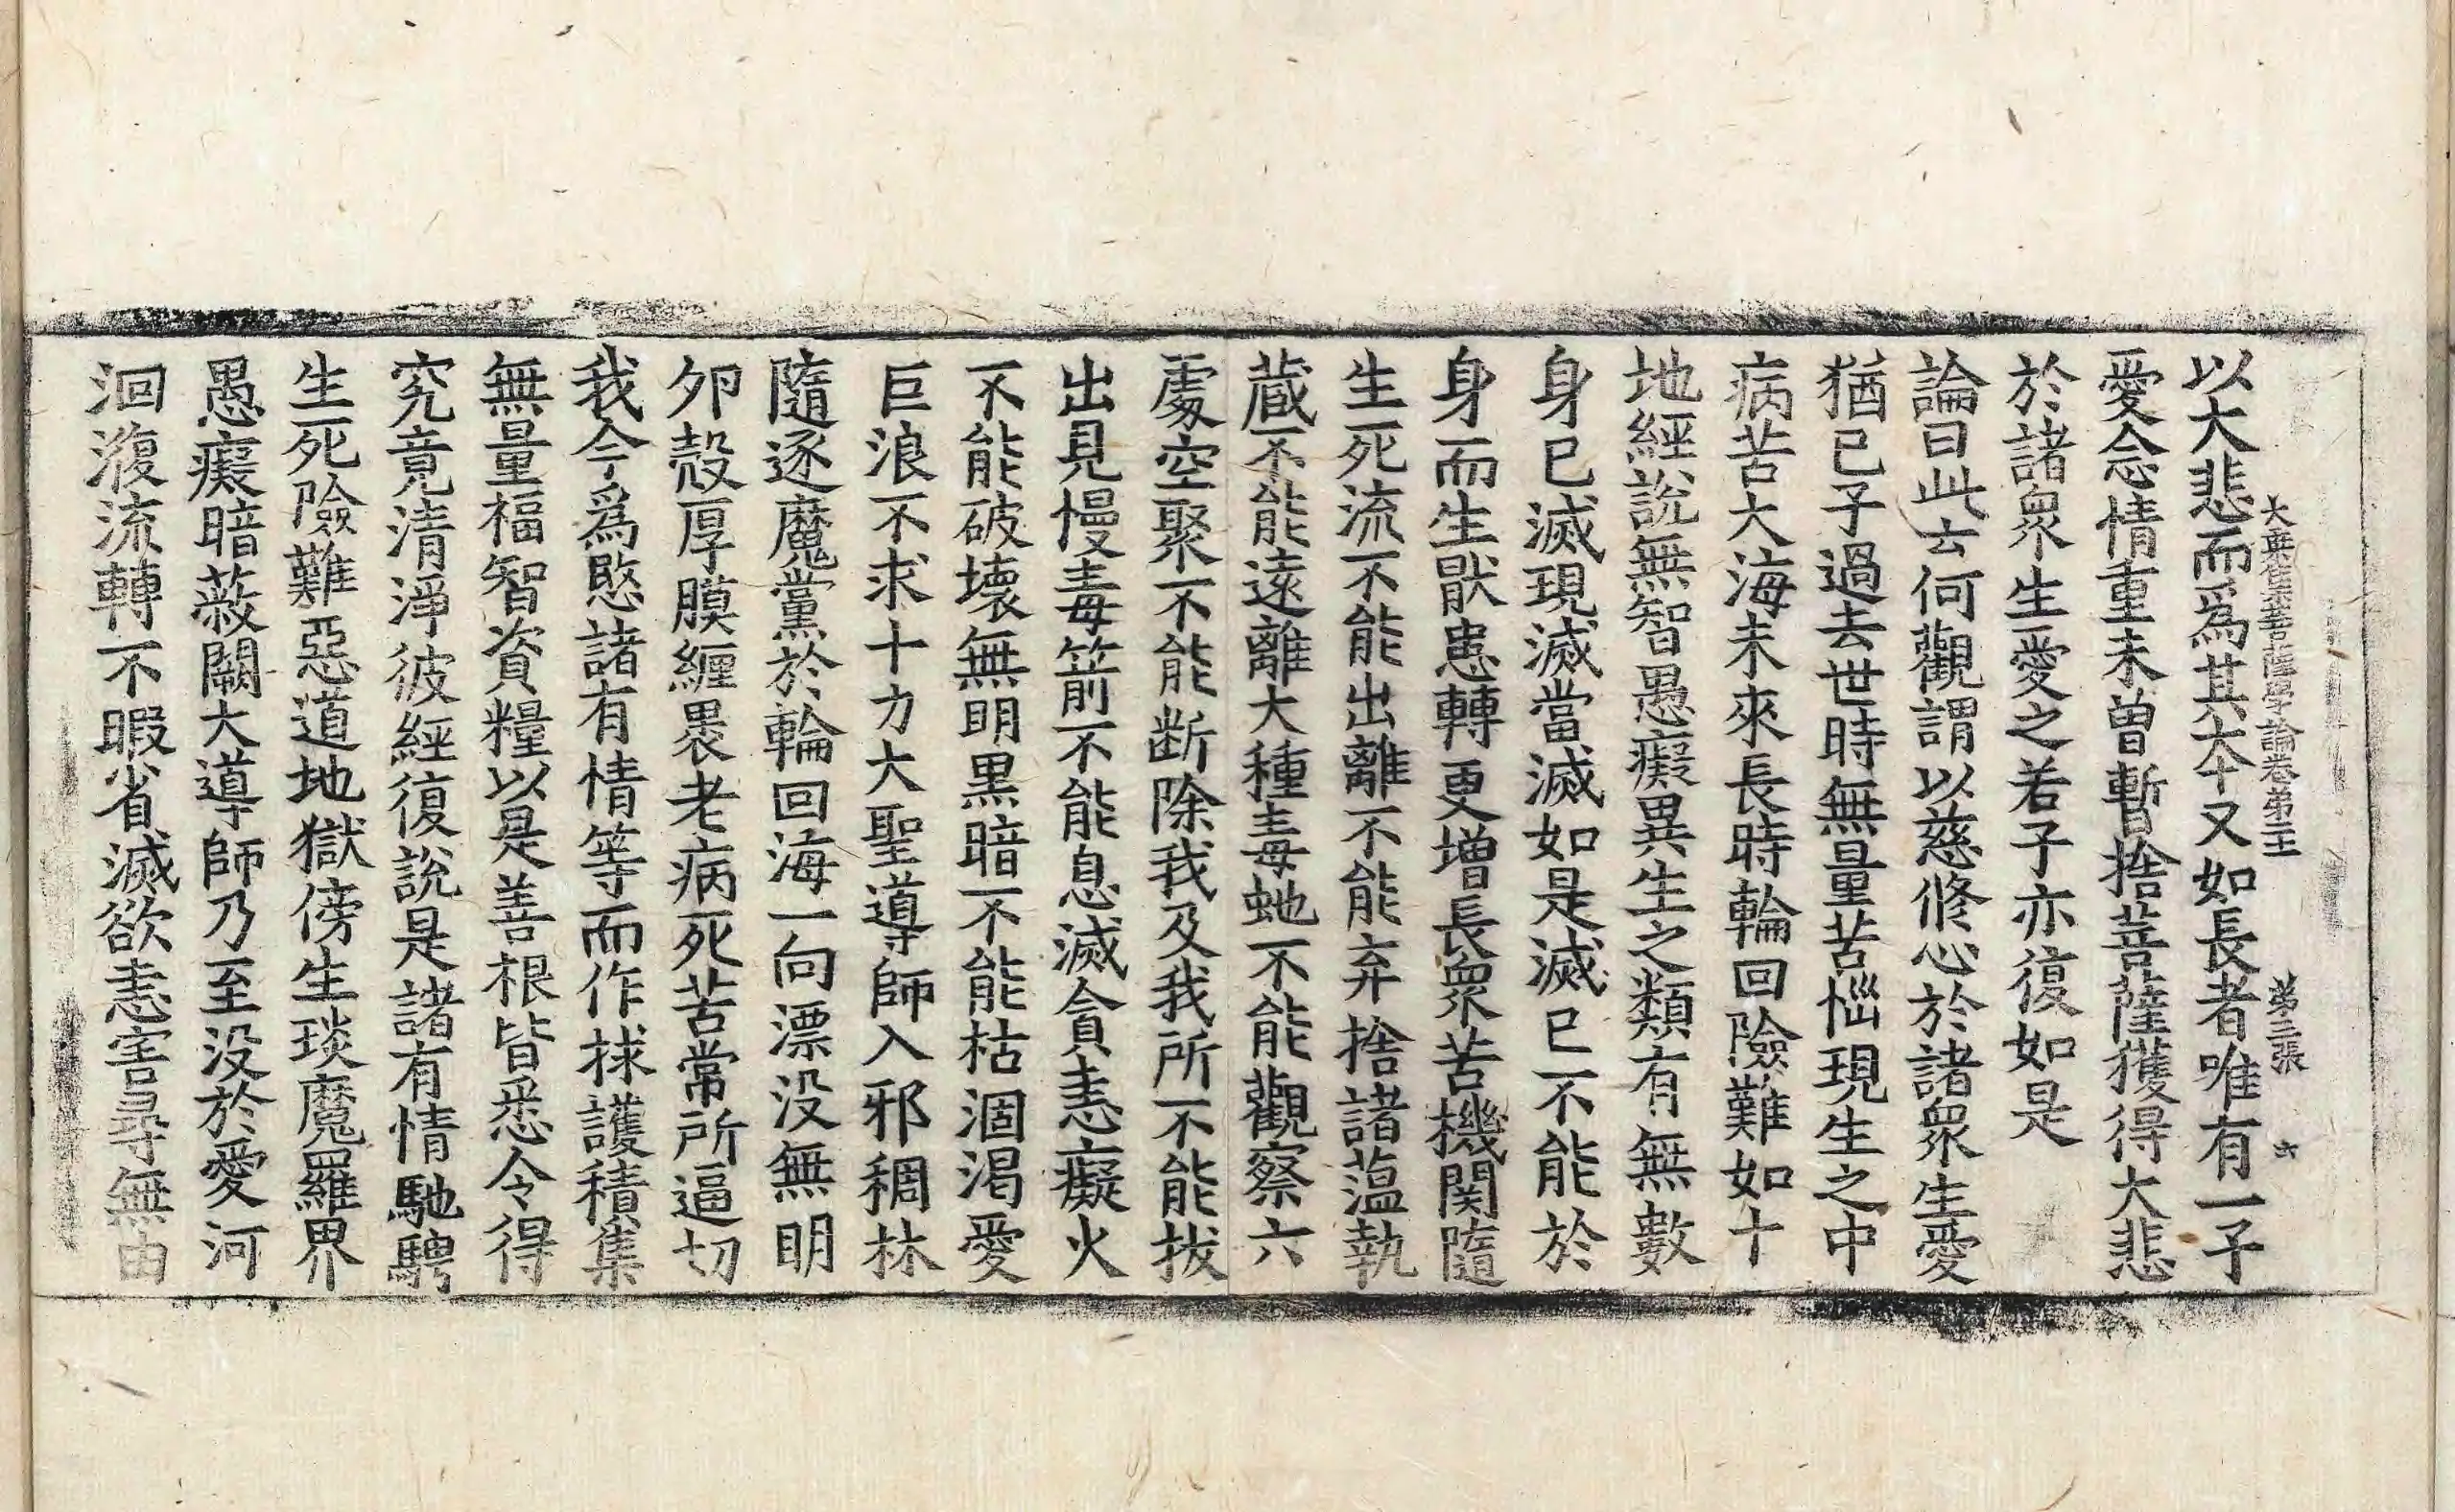 大乘集菩薩學論卷第五　第三張　六
以大悲而為其本又如長者唯有一子
愛念情重未曾暫捨菩薩獲得大悲
於諸衆生愛之若子亦復如是
論曰此云何觀謂以慈修心於諸衆生愛
猶已子過去世時無量苦惱現生之中
病苦大海未來長時輪回險難如十
地經說無智愚癡異生之類有無數
身已滅現滅當滅如是滅已不能於
身而生猒患轉更增長衆苦機関隨
生死流不能出離不能弃捨諸蘊執
藏不能遠離大種毒虵不能觀察六
處空聚不能断除我及我所不能拔
出見慢毒箭不能息滅貪恚癡火
不能破壞無明黒暗不能枯涸渴愛
巨浪不求十力大聖導師入邪稠林
隨逐魔黨於輪回海一向漂没無明
夘㲉厚膜纏褁老病死苦常所逼切
我今為愍諸有情等而作捄護積集
無量福智資糧以是善根皆悉令得
究竟清淨彼經復說是諸有情馳騁
生死險難惡道地獄傍生琰魔羅界
愚癡暗蔽闕大導師乃至没於愛河
洄澓流轉不暇省滅欲恚害尋無由